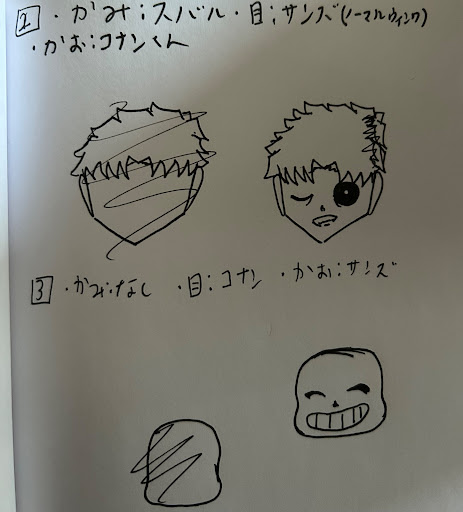 2 ・かみ:スバル ・目:サンズ(ノーマルウィンク)
・かお:コナンくん
3 ・かみ:なし ・目:コナン ・かお:サンズ